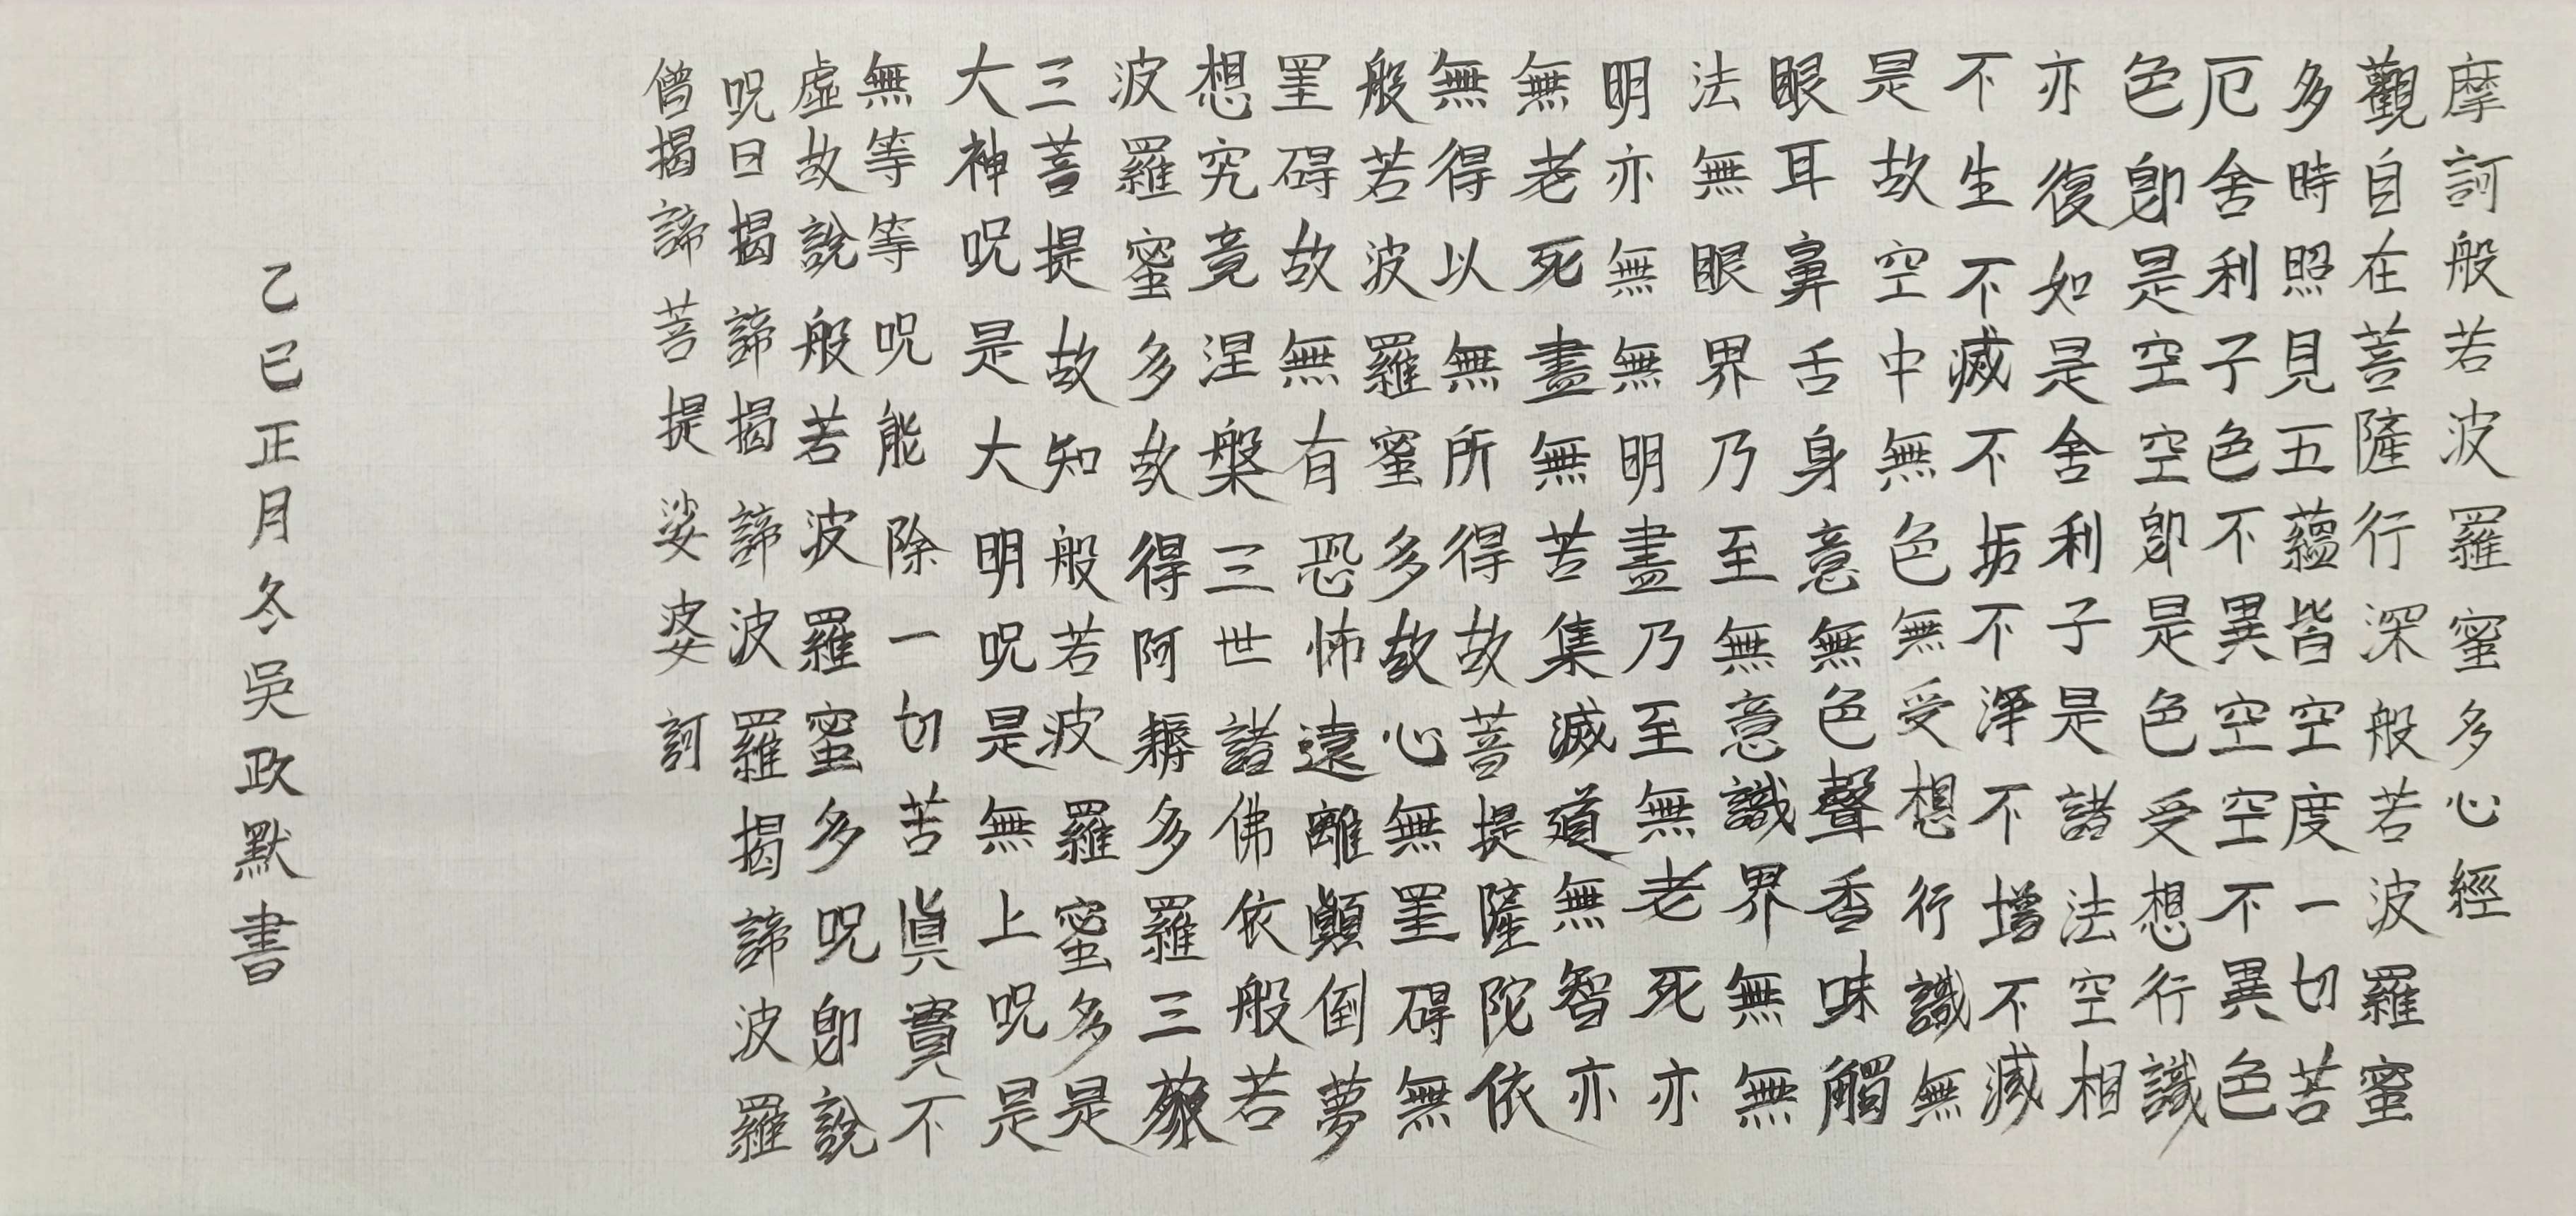 摩訶般若波羅蜜多心經
觀自在菩薩行深般若波羅蜜
多時照見五蘊皆空度一切苦
厄舍利子色不異空空不異色
色卽是空空卽是色受想行識
亦復如是舍利子是諸法空相
不生不滅不垢不淨不增不減
是故空中無色無受想行識無
眼耳鼻舌身意無色聲香味觸
法無眼界乃至無意識界無無
明亦無無明盡乃至無老死亦
無老死盡無苦集滅道無智亦
無得以無所得故菩提薩陀依
般若波羅蜜多故心無罣碍無
罣碍故無有恐怖遠離顛倒夢
想究竟涅槃三世諸佛依般若
波羅蜜多故得阿耨多羅三藐
三菩提故知般若波羅蜜多是
大神呪是大明呪是無上呪是
無等等呪能除一切苦眞實不
虛故說般若波羅蜜多呪卽說
呪曰揭諦揭諦波羅揭諦波羅
僧揭諦菩提娑婆訶
乙巳正月冬吳政默書